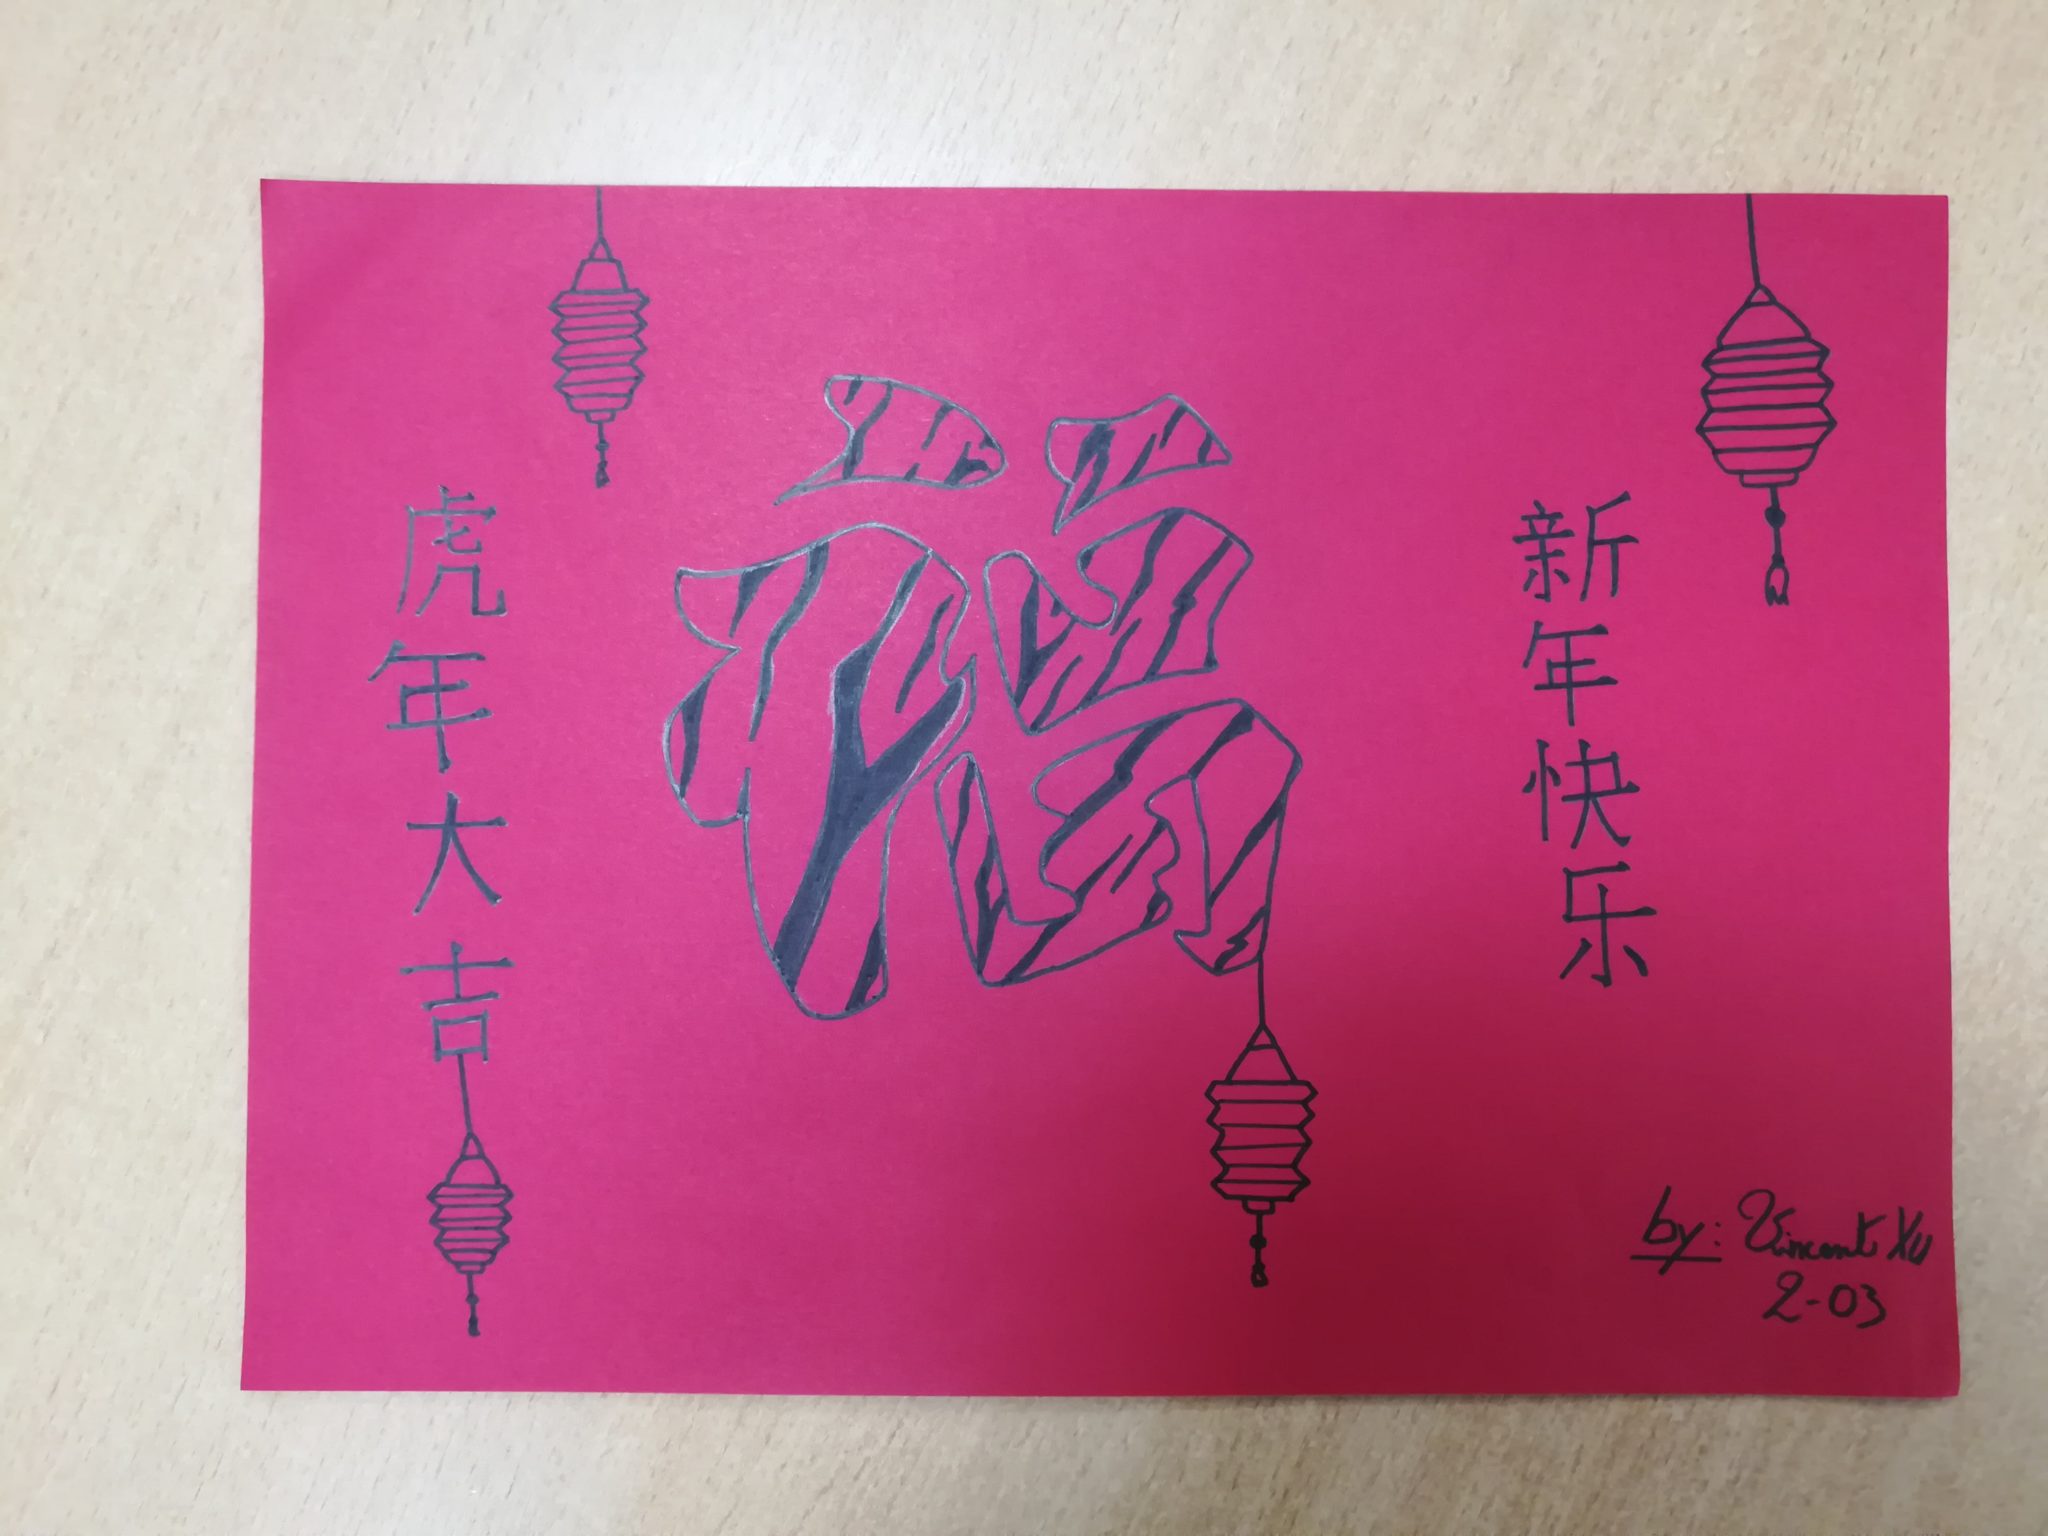 虎年大吉
福
新年快乐
by: Vincent Xu
2-03